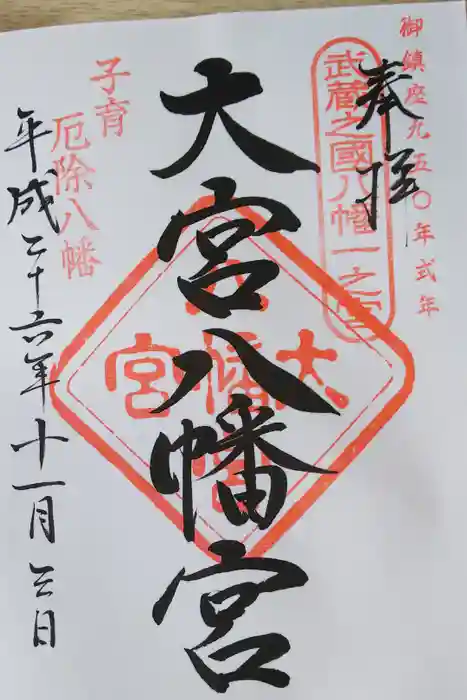 御鎮座九五〇年式年
奉拝
武蔵之國八幡一之宮
大宮八幡宮
大宮八幡宮
子育
厄除八幡
平成二十六年十一月三日